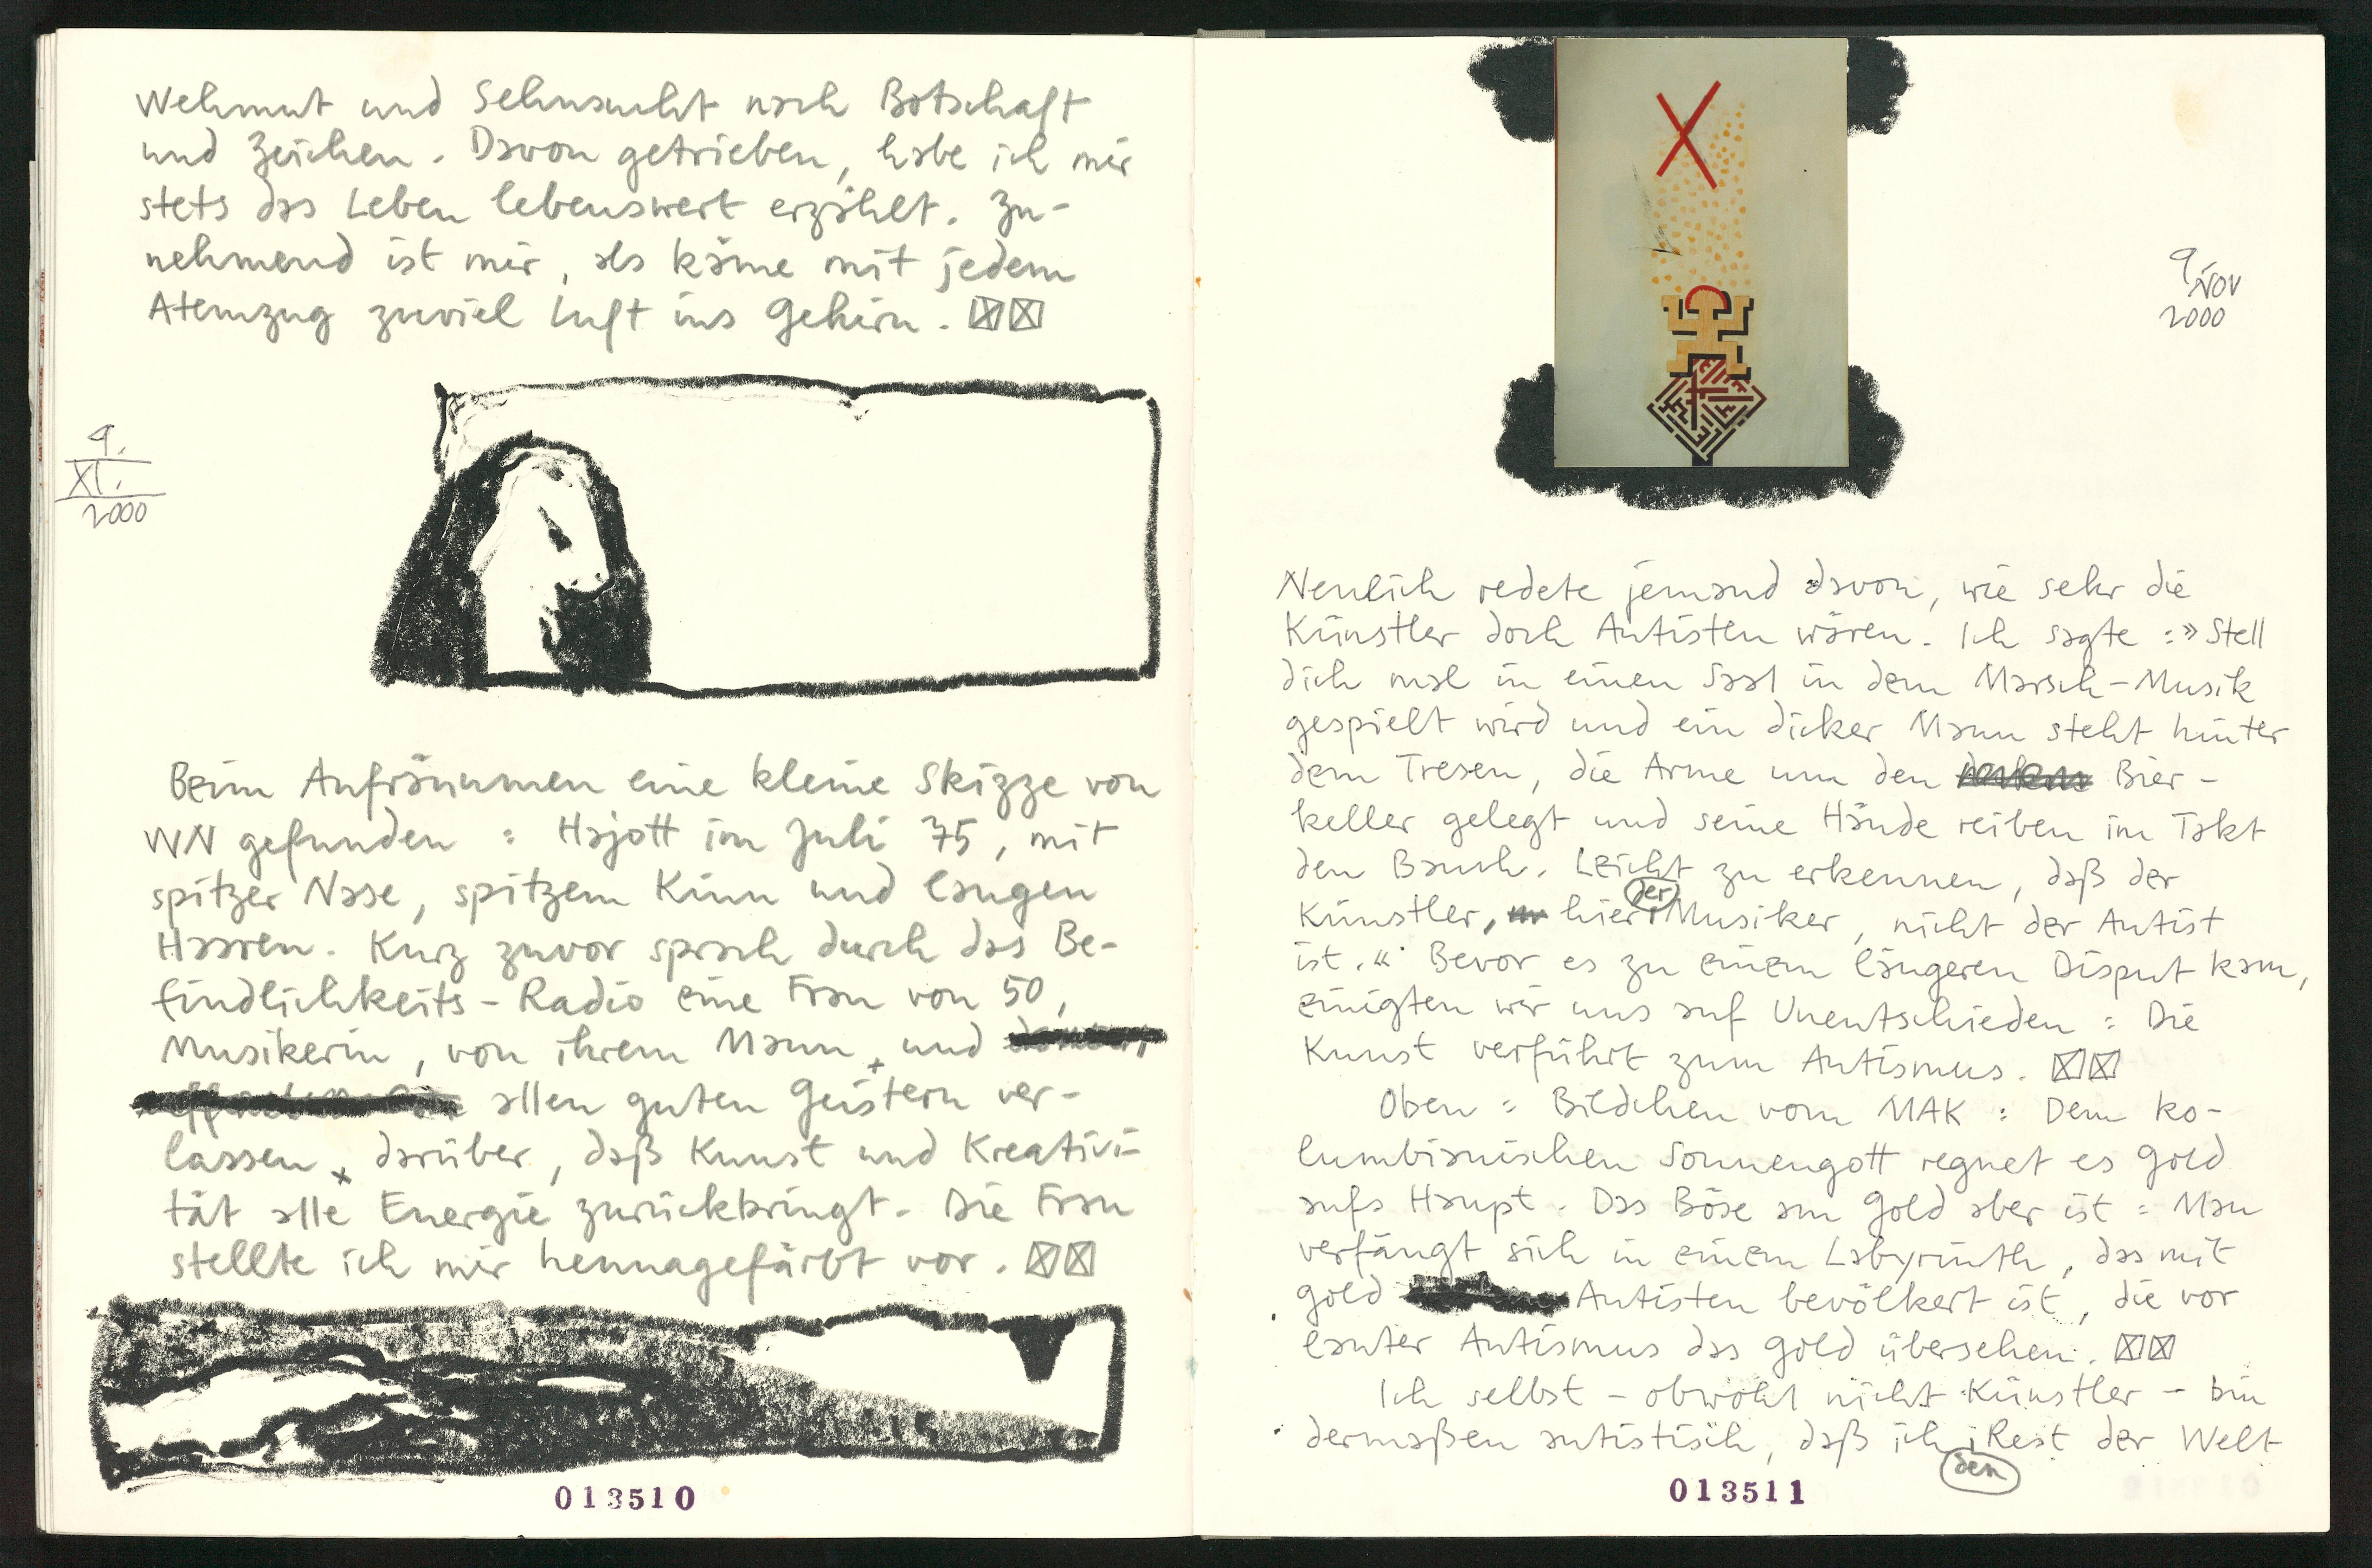 Wehmut und Sehnsucht nach Botschaft
und Zeichen. Davon getrieben, habe ich mir
stets das Leben lebenswert erzählt. Zu-
nehmend ist mir, als käme mit jedem
Atemzug zuviel Luft ins Gehirn.
9.
XI.
2000
Beim Aufräumen eine kleine Skizze von
WN gefunden: Hajott im Juli 75, mit
spitzer Nase, spitzem Kinn und langen
Haaren. Kurz zuvor sprach durch das Be-
findlichkeits-Radio eine Frau von 50,
Musikerin, von ihrem Mann + und
allen guten Geistern ver-
lassen, darüber, daß Kunst und Kreativi-
tät alle Energie zurückbringt. Die Frau
stellte ich mir hennagefärbt vor.
013510
9.
NOV
2000
Neulich redete jemand davon, wie sehr die
Künstler doch Autisten wären. Ich sagte: »Stell
dich mal in einen Saal in dem Marsch-Musik
gespielt wird und ein dicker Mann steht hinter
dem Tresen, die Arme um den Bier-
keller gelegt und seine Hände reiben im Takt
den Bauch. Leicht zu erkennen, daß der
Künstler, hier der Musiker, nicht der Autist
ist.« Bevor es zu einem längeren Disput kam,
einigten wir uns auf Unentschieden: Die
Kunst verführt zum Autismus.
Oben: Bildchen vom MAK: Dem ko-
lumbianischen Sonnengott regnet es Gold
aufs Haupt. Das Böse am Gold aber ist: Man
verfängt sich in einem Labyrinth, das mit
Gold Autisten bevölkert ist, die vor
lauter Autismus das Gold übersehen.
Ich selbst – obwohl nicht Künstler – bin
dermaßen autistisch, daß ich den Rest der Welt
013511